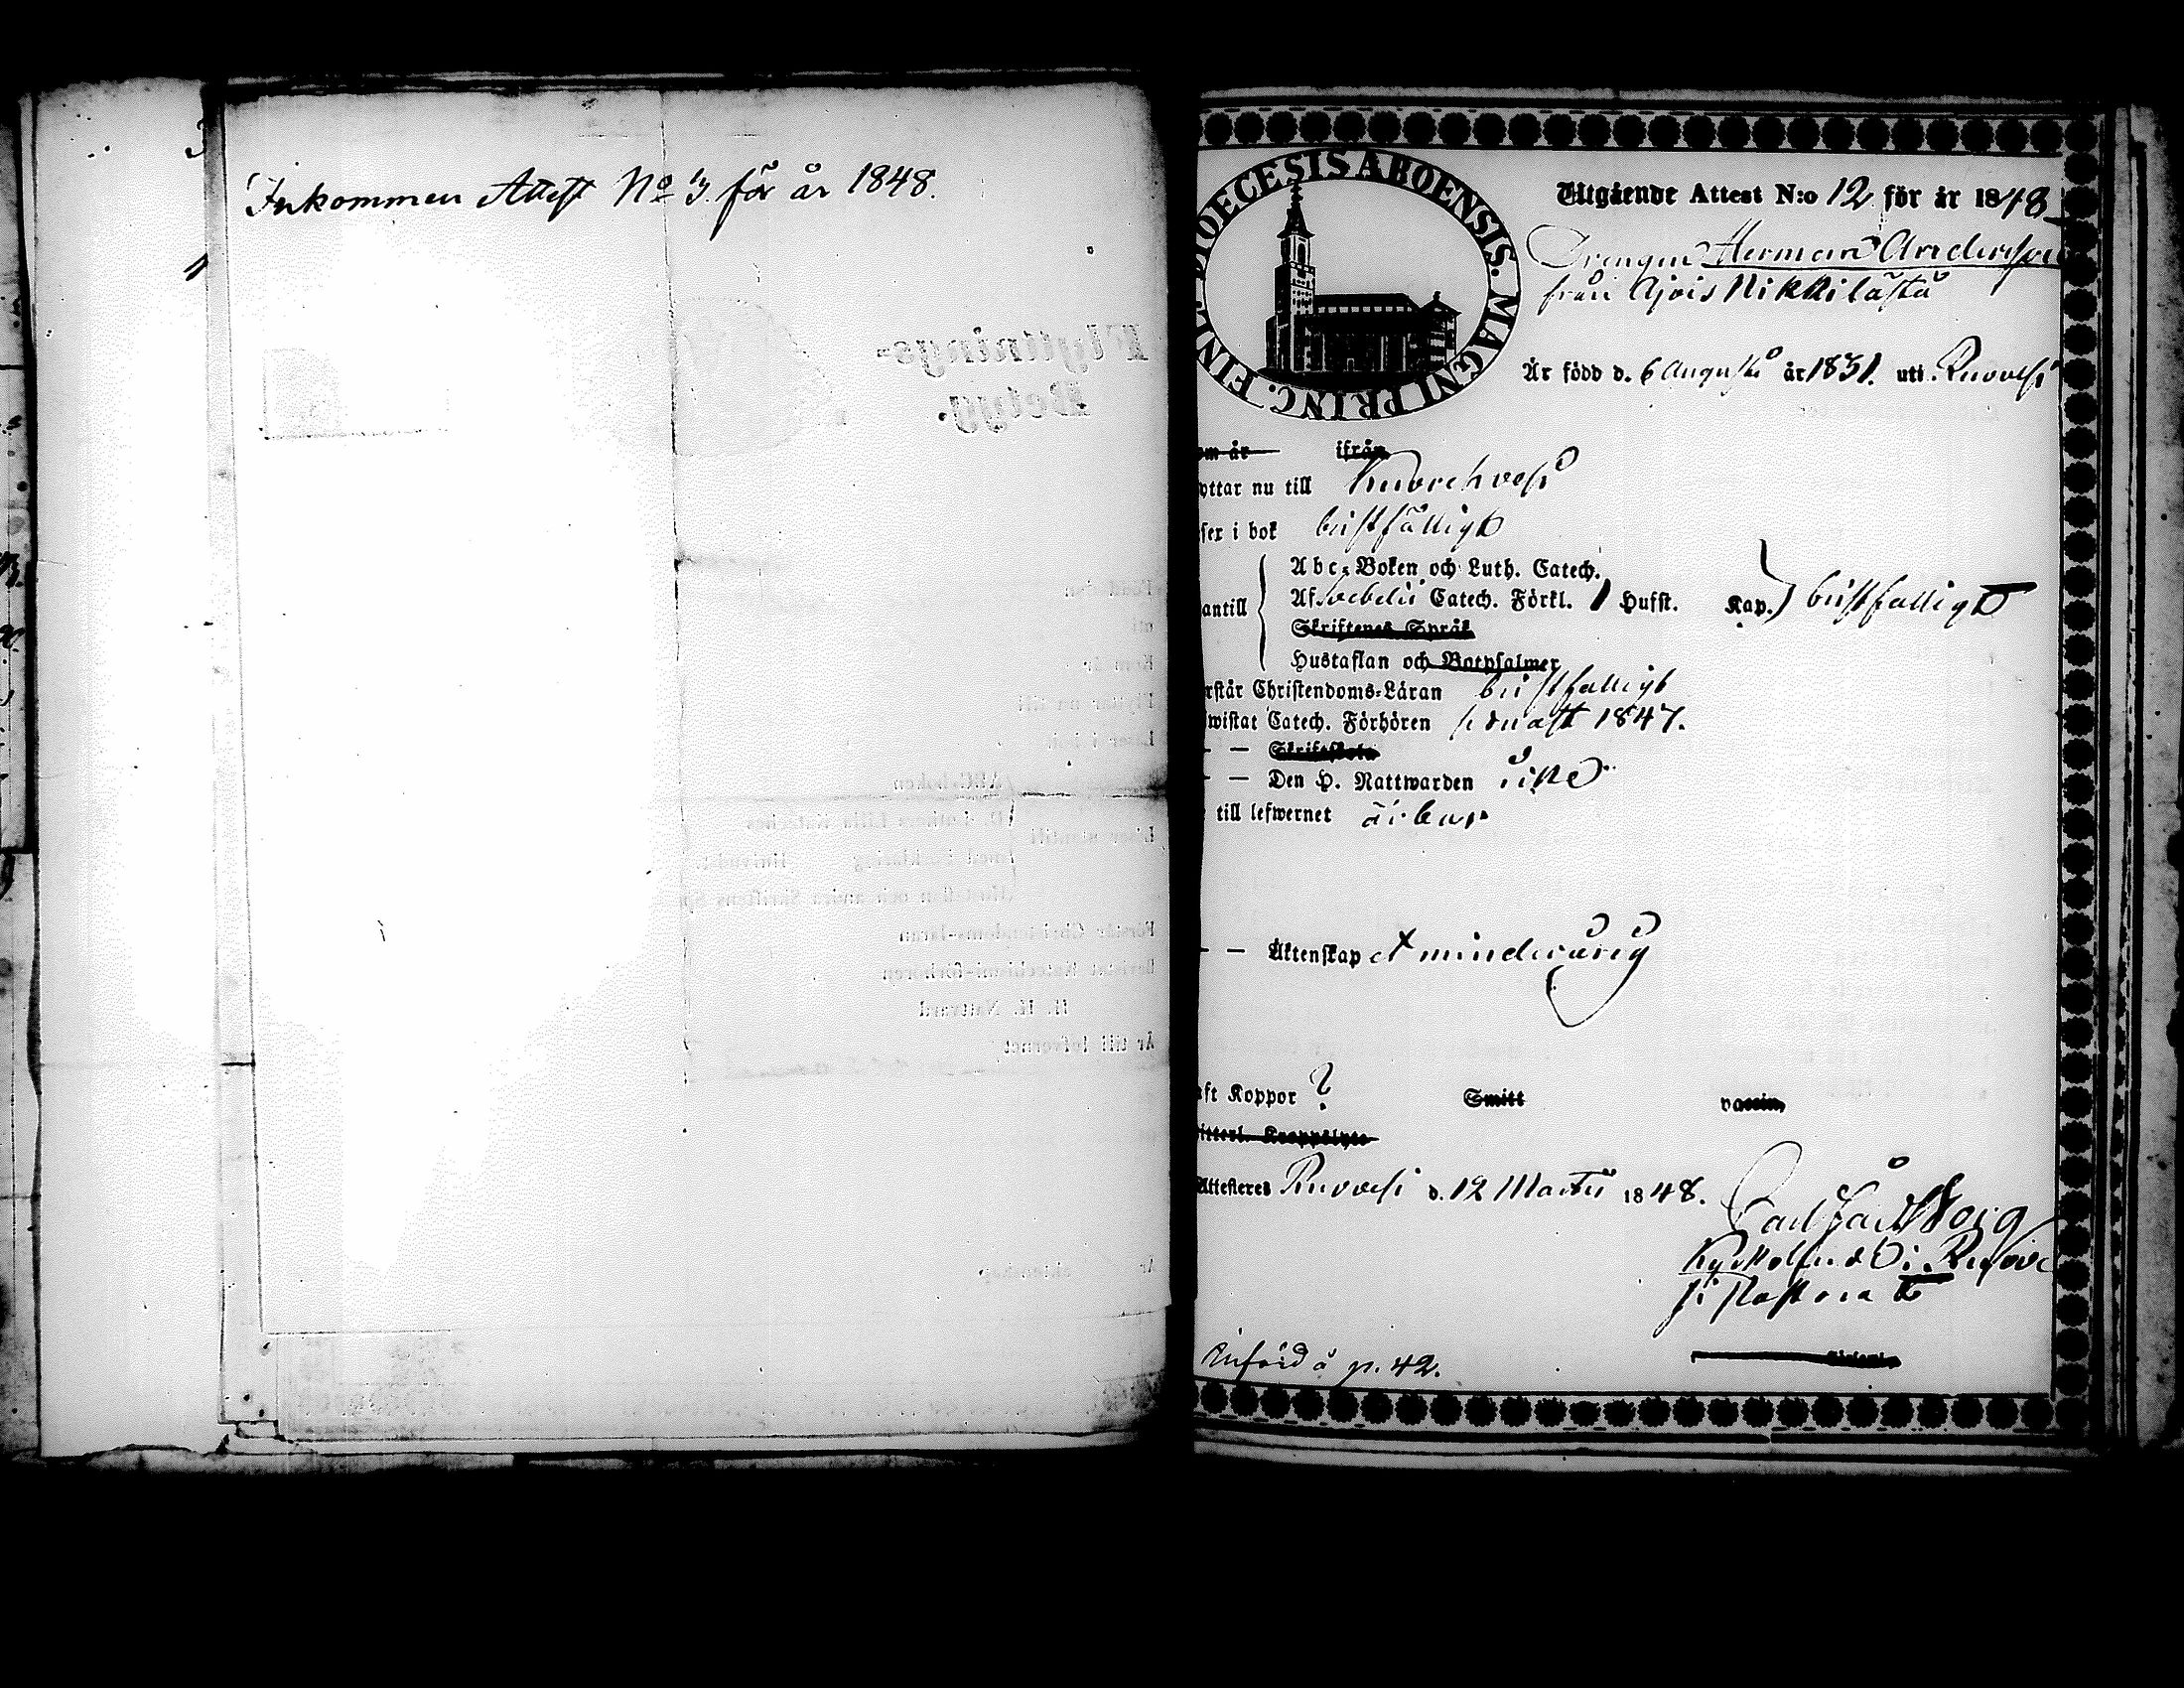 Inkommen Attest No 3 för år 1848.
DIOECESIS ABOENSIS. MAGNI PRINC. FINL.
Utgående Attest N:o 12 för år 1848
Drengen Herman Andersson
från Ajois Nikkilästä
Är född d. 6 Augusti år 1831. uti Ruovesi
om år ifrån
yttar nu till Kuorehvesi
ser i bok bristfälligt
Abc-Boken och Luth. Catech.
antill Af Svebelii Catech. Förkl. 1 Hufst. Kap. bristfälligt
Skriftenes Språk
Hustaflan och Botpsalmer
rstår Christendoms-Läran bristfälligt
wistat Catech. Förhören senast 1847.
— Skriftskola
— Den H. Nattwarden icke
till lefwernet ärbar
— Äktenskap et minderårig
aft Koppor ? Smitt vaccin,
itterl. Kroppslyte
Attesteras Ruovesi d. 12 Martii 1848.
Carl
i
Införd å p. 42.